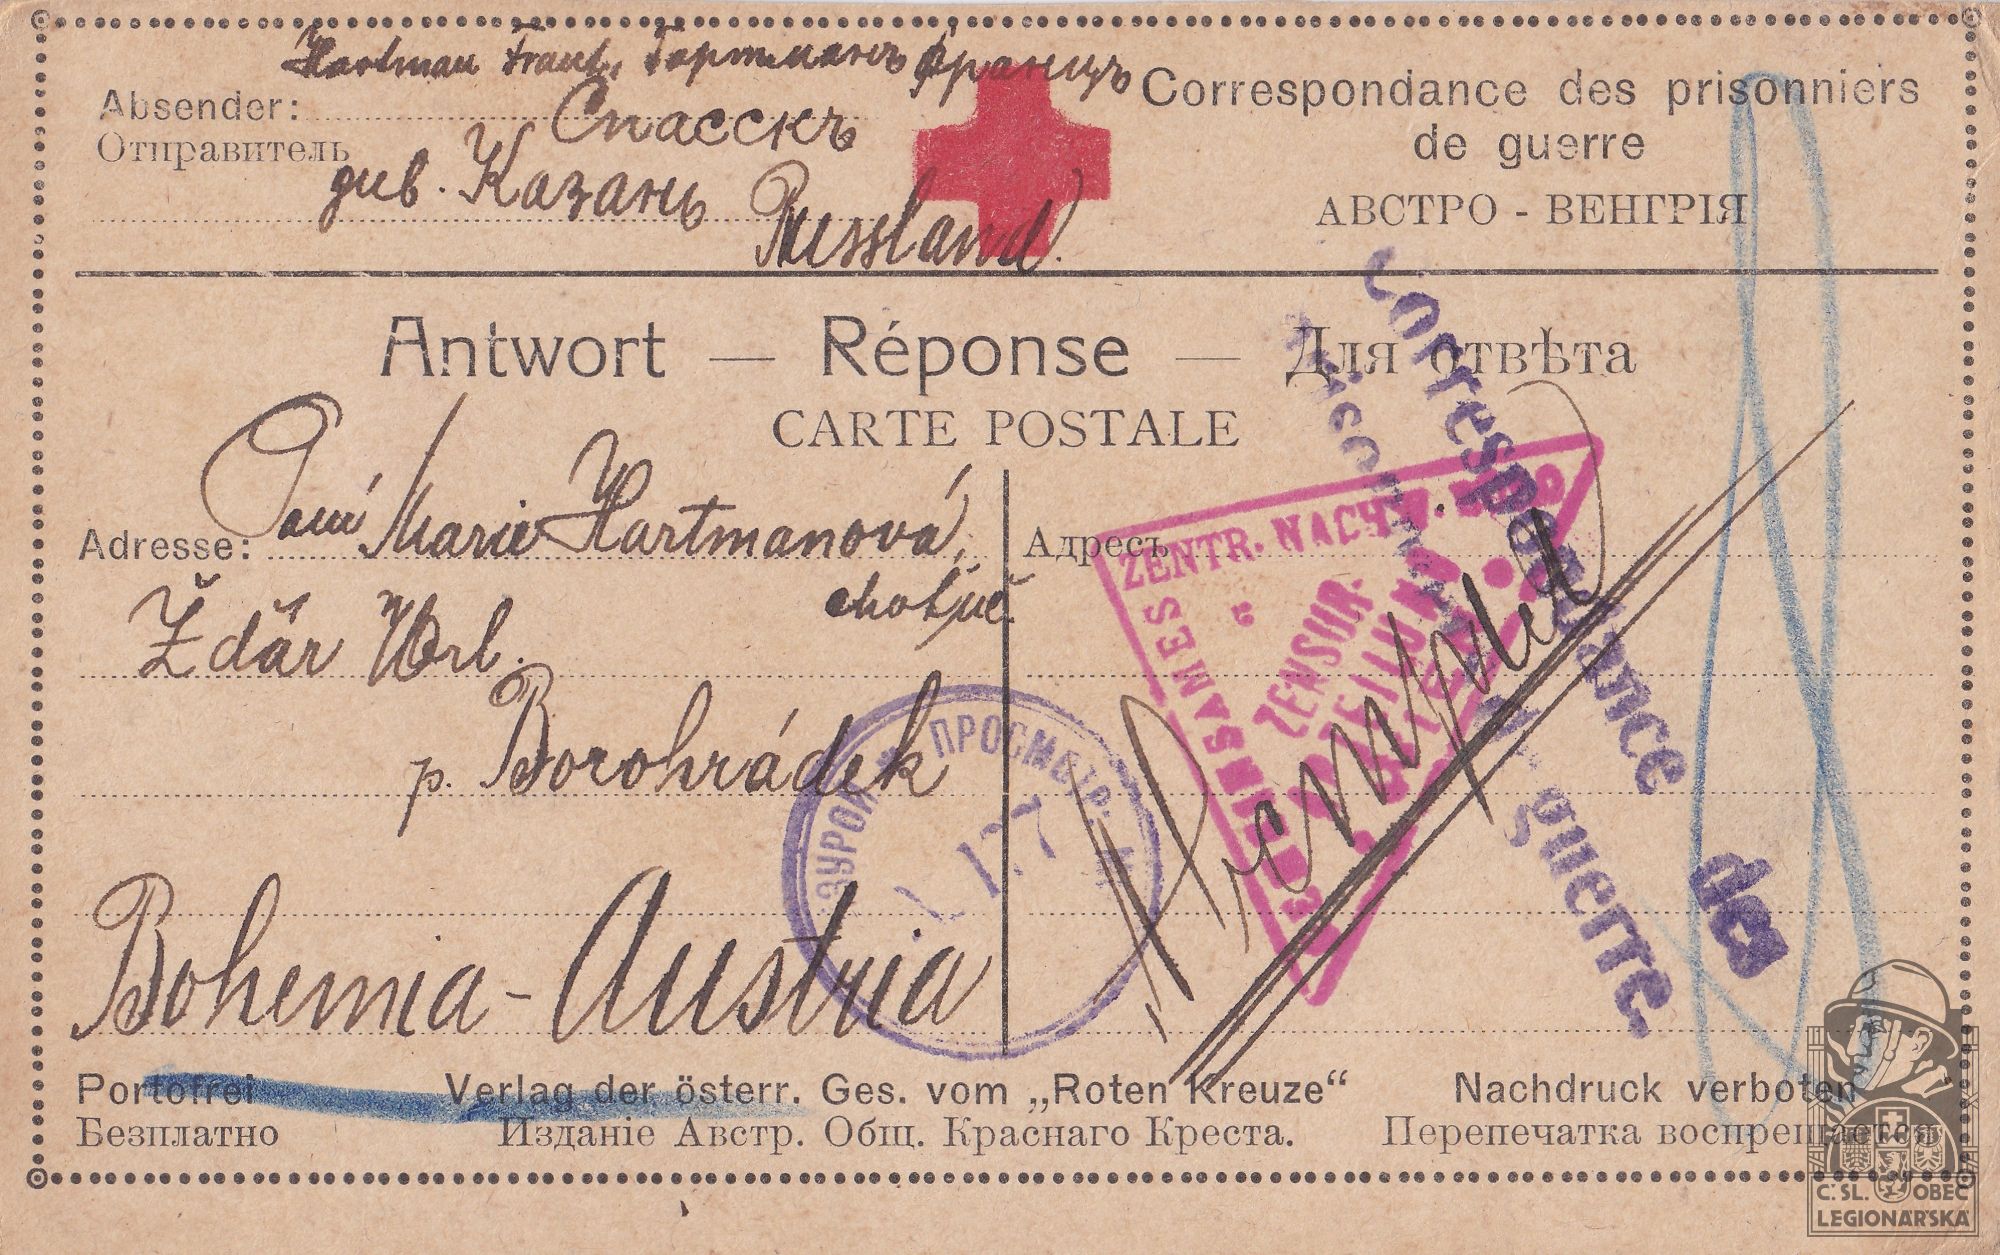 Hartman Frant, Гартманъ Францъ
Absender: Спасскъ
Отправитель
див. Казань Russland.
Correspondance des prisonniers
de guerre
АВСТРО - ВЕНГРІЯ
Antwort — Réponse — Для отвѣта
CARTE POSTALE
Adresse: Paní Marie Hartmanová,
choť p. uč.
Žďár
p. Borohrádek
Bohemia - Austria
Адресъ
ZENTR. NACHW.
ZENSUR-
ПРОСМОТР.
127
Correspondance des
prisonniers de guerre
Portofrei
Безплатно
Verlag der österr. Ges. vom „Roten Kreuze“
Изданіе Австр. Общ. Краснаго Креста.
Nachdruck verboten
Перепечатка воспрещается
Č. SL. OBEC
LEGIONÁŘSKÁ